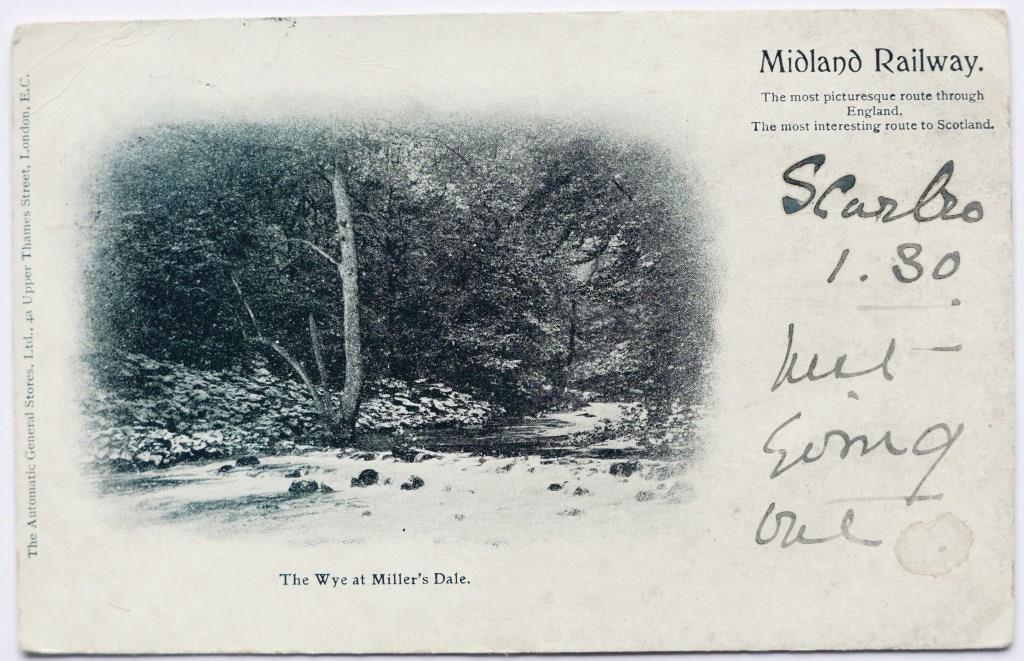 Midland Railway.
The most picturesque route through
England.
The most interesting route to Scotland.
Scarbro
1.30
Just
Going
out
The Wye at Miller's Dale.
The Automatic General Stores, Ltd., 4a Upper Thames Street, London, E.C.